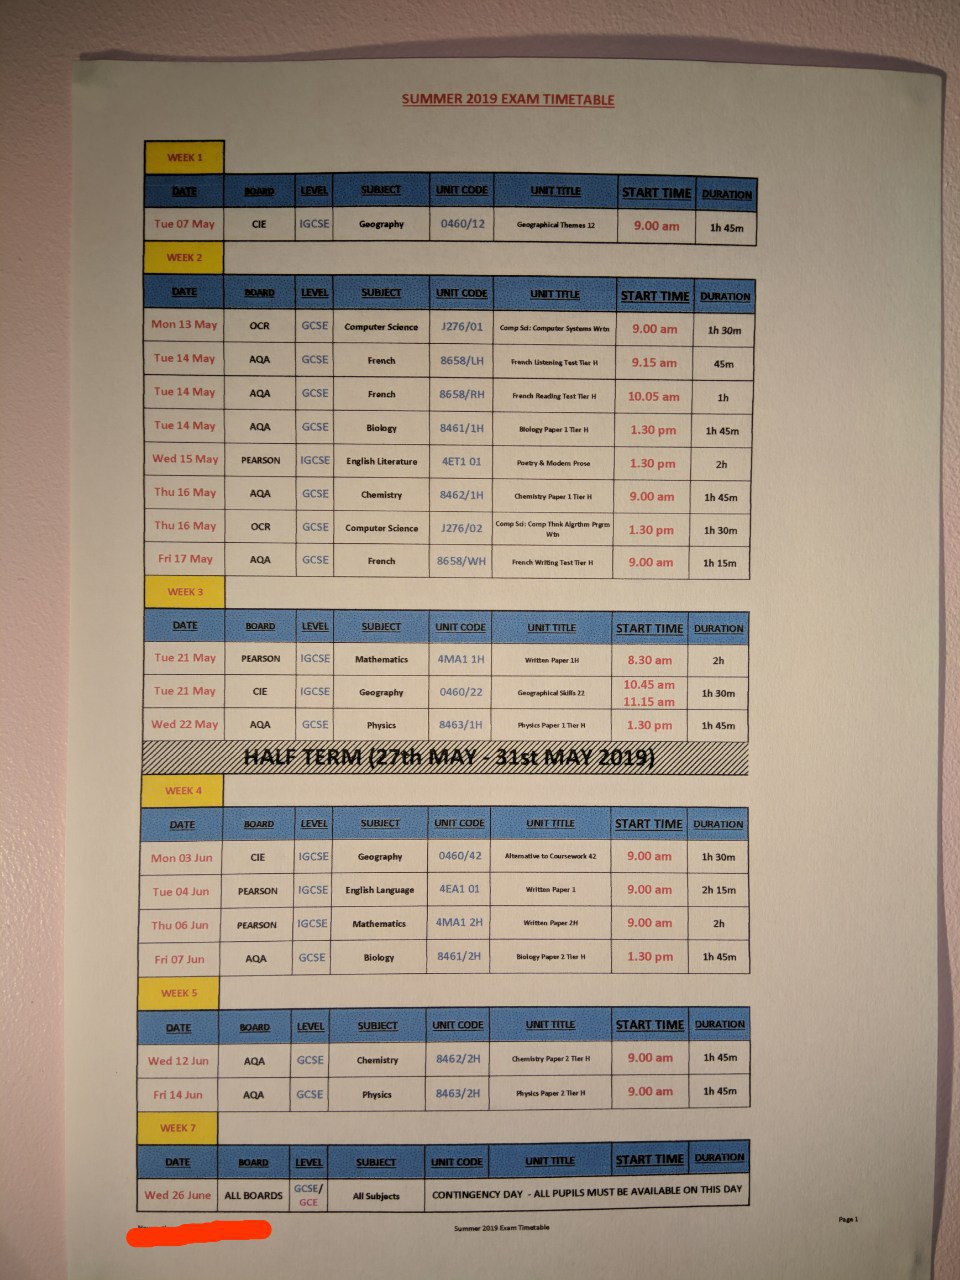 SUMMER 2019 EXAM TIMETABLE
WEEK 1
DATE BOARD LEVEL SUBJECT UNIT CODE UNIT TITLE START TIME DURATION
Tue 07 May CIE IGCSE Geography 0460/12 Geographical Themes 12 9.00 am 1h 45m
WEEK 2
DATE BOARD LEVEL SUBJECT UNIT CODE UNIT TITLE START TIME DURATION
Mon 13 May OCR GCSE Computer Science J276/01 Comp Sci: Computer Systems Wrtn 9.00 am 1h 30m
Tue 14 May AQA GCSE French 8658/LH French Listening Test Tier H 9.15 am 45m
Tue 14 May AQA GCSE French 8658/RH French Reading Test Tier H 10.05 am 1h
Tue 14 May AQA GCSE Biology 8461/1H Biology Paper 1 Tier H 1.30 pm 1h 45m
Wed 15 May PEARSON IGCSE English Literature 4ET1 01 Poetry & Modern Prose 1.30 pm 2h
Thu 16 May AQA GCSE Chemistry 8462/1H Chemistry Paper 1 Tier H 9.00 am 1h 45m
Thu 16 May OCR GCSE Computer Science J276/02 Comp Sci: Comp Thnk Algrthm Prgrm Wtn 1.30 pm 1h 30m
Fri 17 May AQA GCSE French 8658/WH French Writing Test Tier H 9.00 am 1h 15m
WEEK 3
DATE BOARD LEVEL SUBJECT UNIT CODE UNIT TITLE START TIME DURATION
Tue 21 May PEARSON IGCSE Mathematics 4MA1 1H Written Paper 1H 8.30 am 2h
Tue 21 May CIE IGCSE Geography 0460/22 Geographical Skills 22 10.45 am 11.15 am 1h 30m
Wed 22 May AQA GCSE Physics 8463/1H Physics Paper 1 Tier H 1.30 pm 1h 45m
HALF TERM (27th MAY - 31st MAY 2019)
WEEK 4
DATE BOARD LEVEL SUBJECT UNIT CODE UNIT TITLE START TIME DURATION
Mon 03 Jun CIE IGCSE Geography 0460/42 Alternative to Coursework 42 9.00 am 1h 30m
Tue 04 Jun PEARSON IGCSE English Language 4EA1 01 Written Paper 1 9.00 am 2h 15m
Thu 06 Jun PEARSON IGCSE Mathematics 4MA1 2H Written Paper 2H 9.00 am 2h
Fri 07 Jun AQA GCSE Biology 8461/2H Biology Paper 2 Tier H 1.30 pm 1h 45m
WEEK 5
DATE BOARD LEVEL SUBJECT UNIT CODE UNIT TITLE START TIME DURATION
Wed 12 Jun AQA GCSE Chemistry 8462/2H Chemistry Paper 2 Tier H 9.00 am 1h 45m
Fri 14 Jun AQA GCSE Physics 8463/2H Physics Paper 2 Tier H 9.00 am 1h 45m
WEEK 7
DATE BOARD LEVEL SUBJECT UNIT CODE UNIT TITLE START TIME DURATION
Wed 26 June ALL BOARDS GCSE/ GCE All Subjects CONTINGENCY DAY - ALL PUPILS MUST BE AVAILABLE ON THIS DAY
Summer 2019 Exam Timetable Page 1